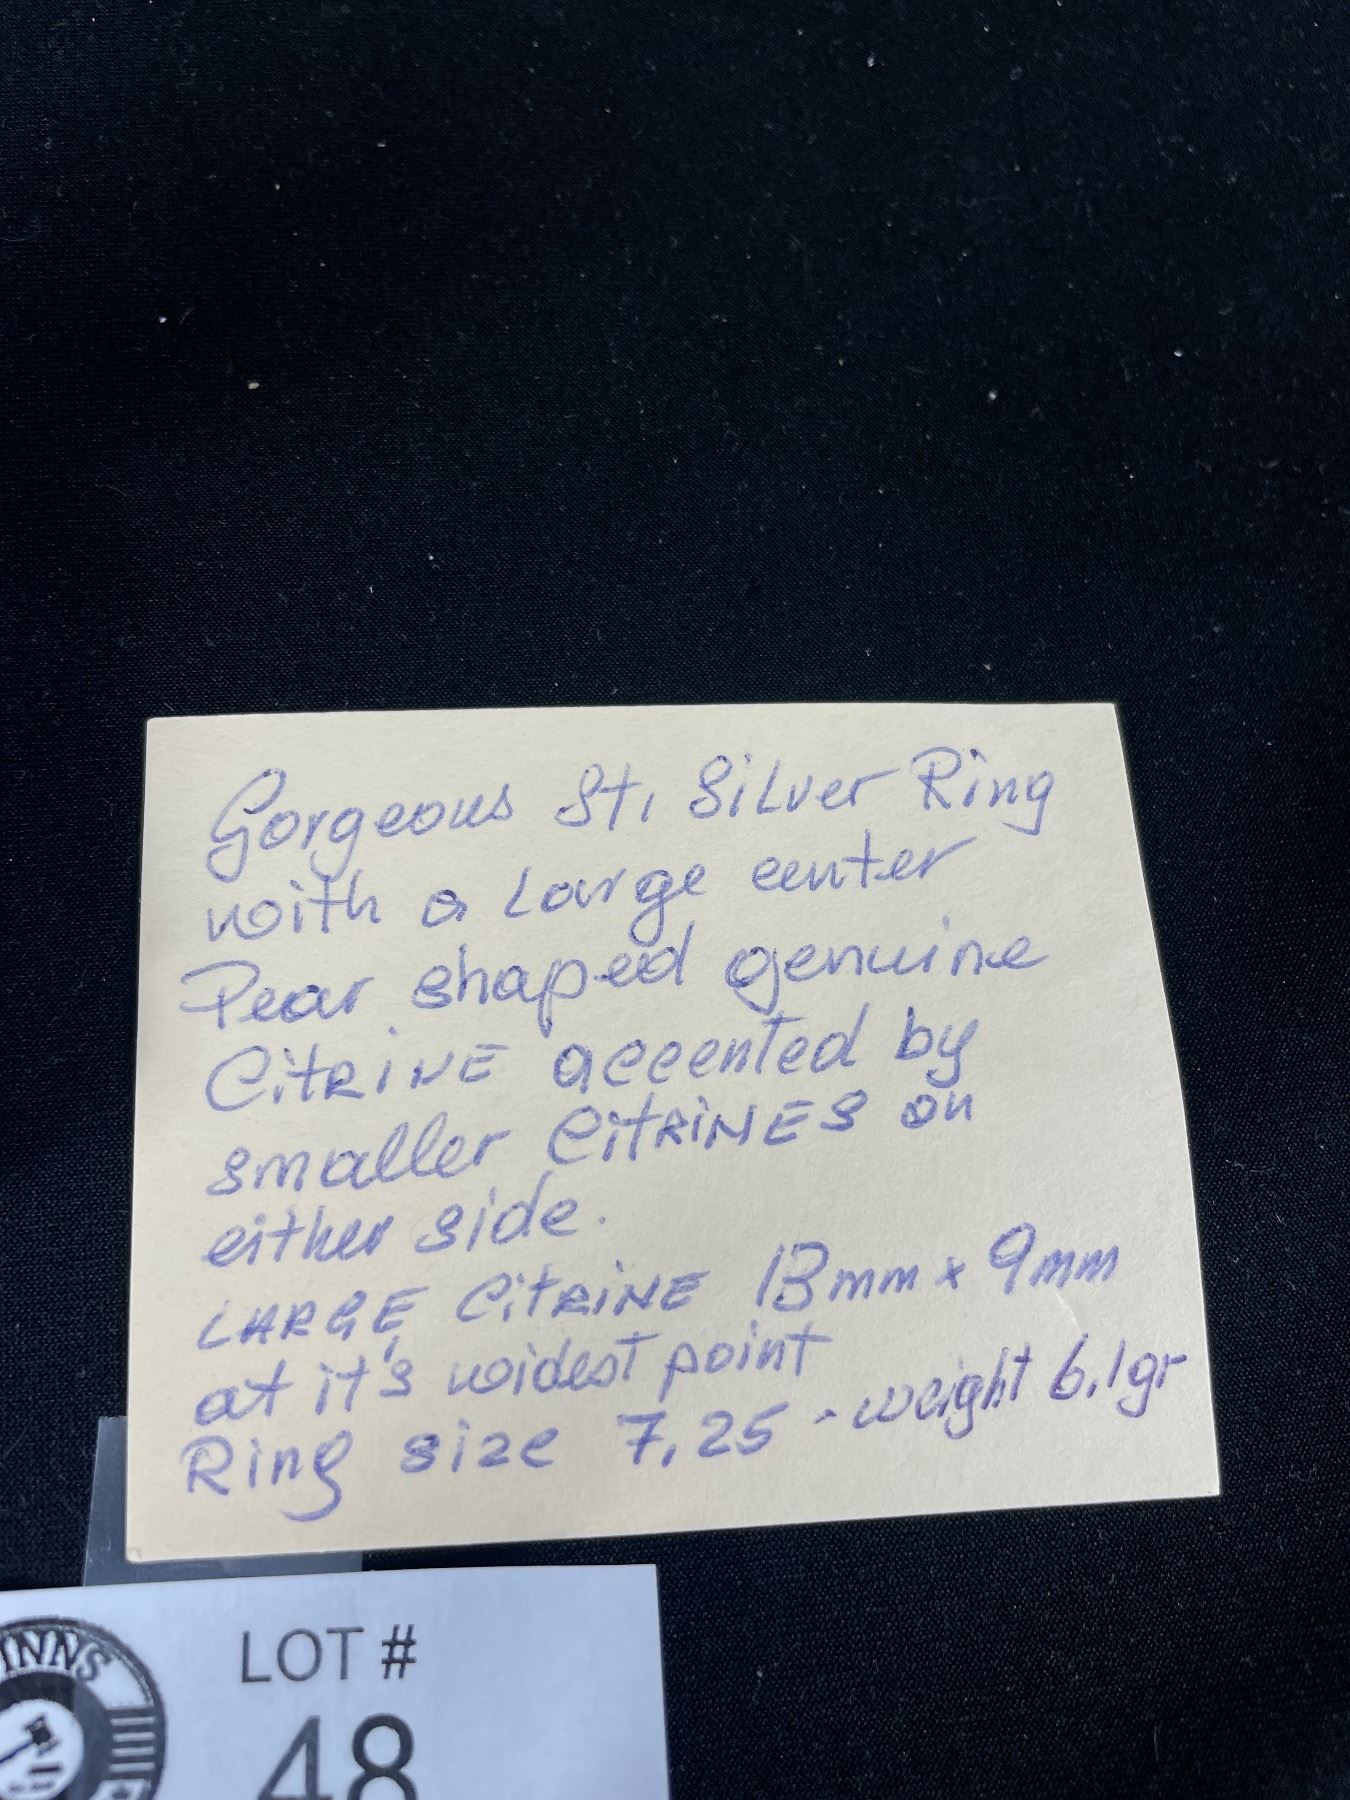 Gorgeous St. Silver Ring
with a Large center
Pear shaped genuine
CitRiNE accented by
smaller CitRiNES on
either side.
LARGE CitRiNE 13mm x 9mm
at it's widest point
Ring size 7.25 - weight 6.1gr
INNS
LOT #
48